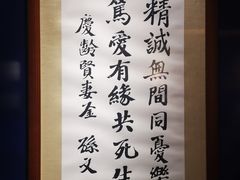 精誠無間同憂樂
篤愛有緣共死生
慶齡賢妻鉴
孫文